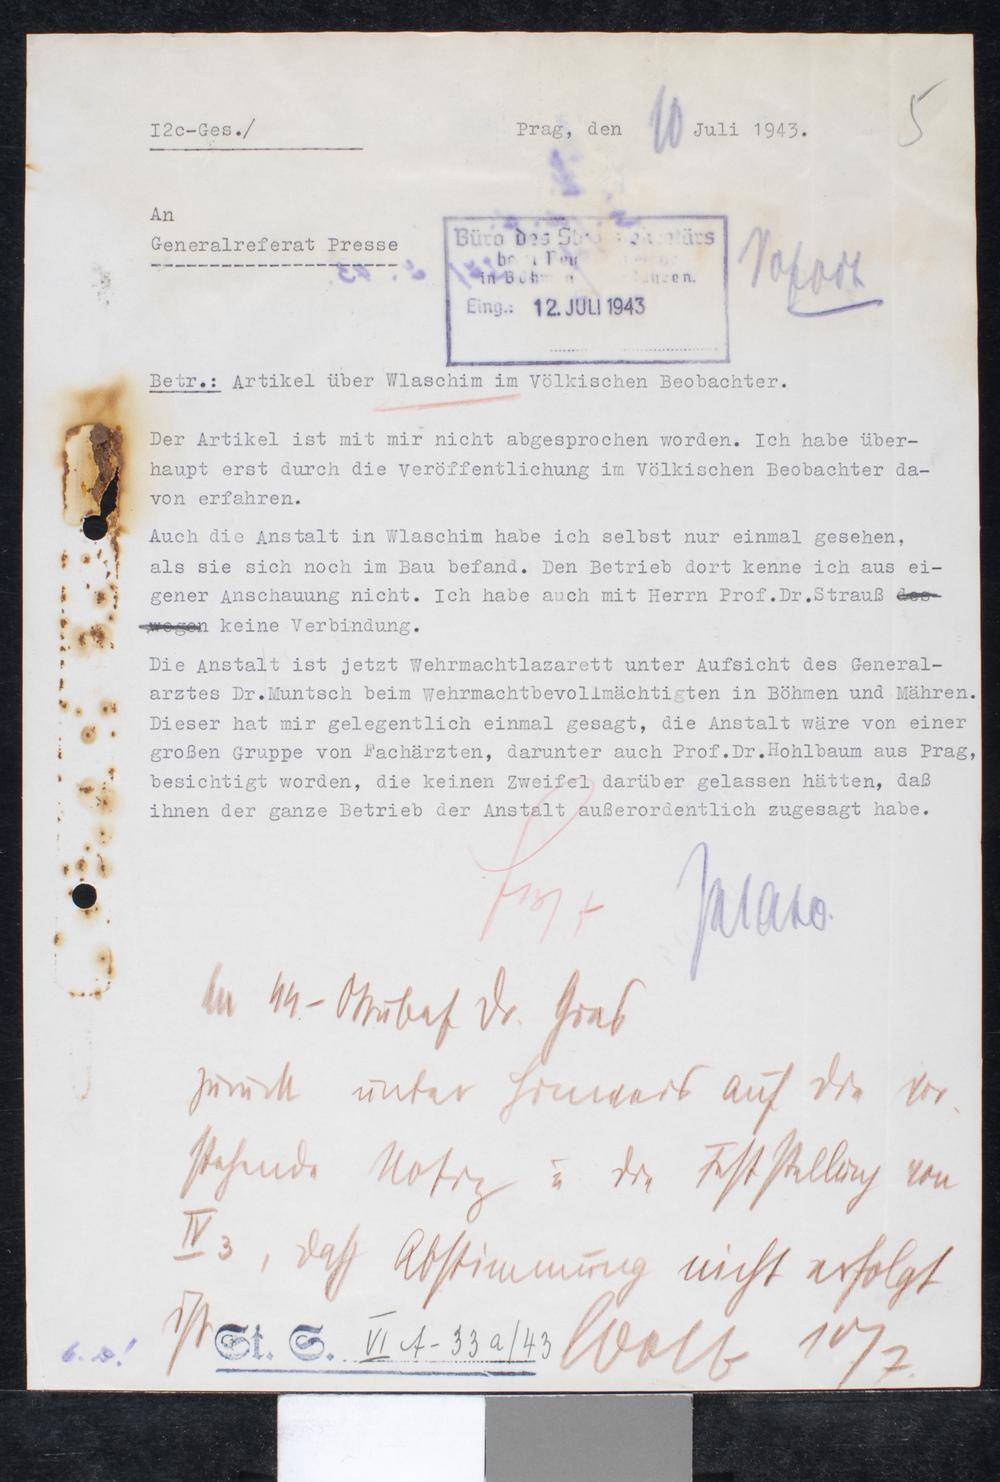 5
I2c-Ges./ Prag, den 10 Juli 1943.
An
Generalreferat Presse
Büro des
in Böhm
Eing.: 12. JULI 1943
Sofort
Betr.: Artikel über Wlaschim im Völkischen Beobachter.
Der Artikel ist mit mir nicht abgesprochen worden. Ich habe über-
haupt erst durch die Veröffentlichung im Völkischen Beobachter da-
von erfahren.
Auch die Anstalt in Wlaschim habe ich selbst nur einmal gesehen,
als sie sich noch im Bau befand. Den Betrieb dort kenne ich aus ei-
gener Anschauung nicht. Ich habe auch mit Herrn Prof.Dr.Strauß des-
wegen keine Verbindung.
Die Anstalt ist jetzt Wehrmachtlazarett unter Aufsicht des General-
arztes Dr.Muntsch beim Wehrmachtbevollmächtigten in Böhmen und Mähren.
Dieser hat mir gelegentlich einmal gesagt, die Anstalt wäre von einer
großen Gruppe von Fachärzten, darunter auch Prof.Dr.Hohlbaum aus Prag,
besichtigt worden, die keinen Zweifel darüber gelassen hätten, daß
ihnen der ganze Betrieb der Anstalt außerordentlich zugesagt habe.
An SS-Ostubaf Dr. Gies
zurück unter Hinweis auf die vor-
stehende Notiz u die Feststellung von
IV 3, daß Abstimmung nicht erfolgt
ist
St. S. VI A-33a/43 Wolf 10/7.